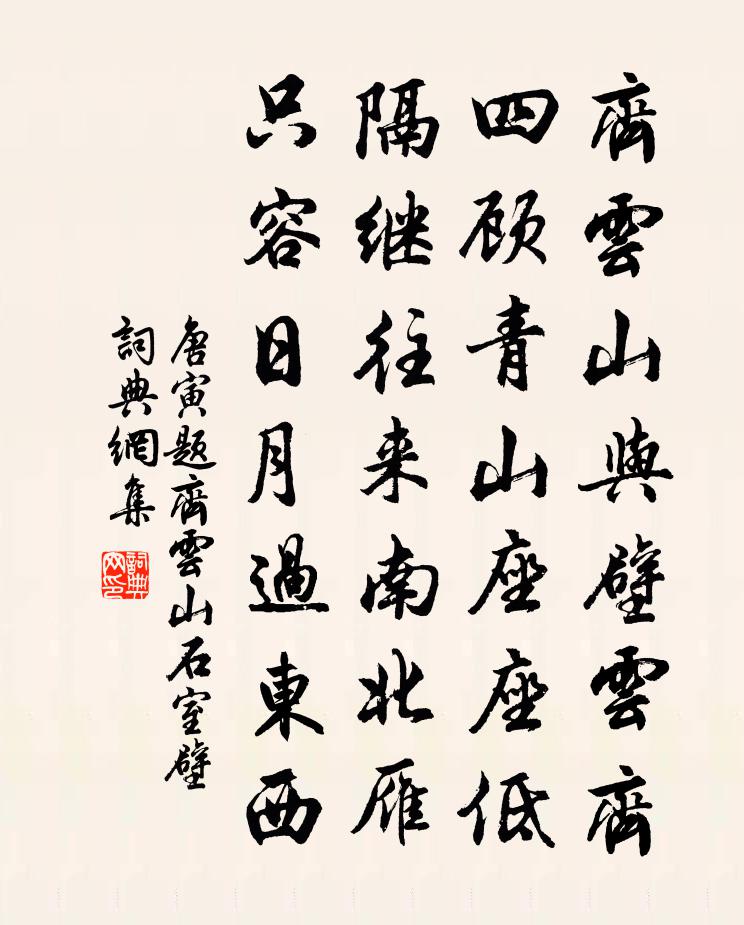 齊雲山與壁雲齊
四顾青山座座低
隔继往来南北雁
只容日月過東西
唐寅题齊雲山石室壁
詞典網集
詞典网印